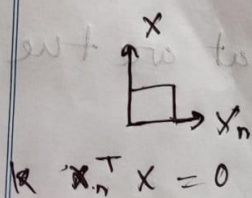 X
X_n
X_n^T X = 0